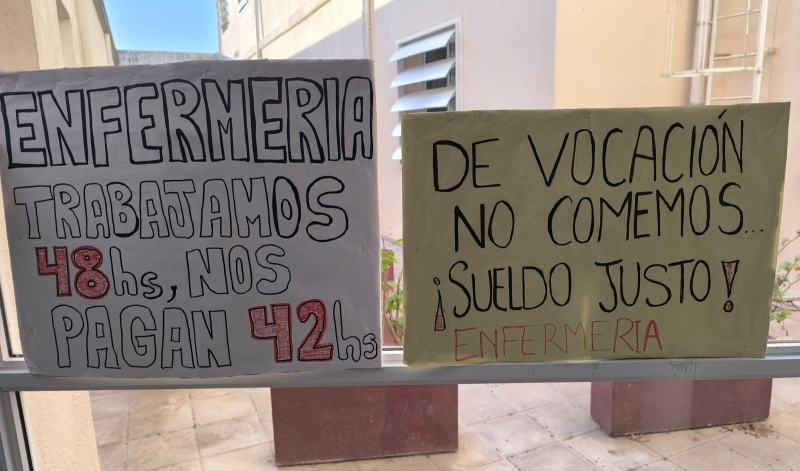 ENFERMERIA
TRABAJAMOS
48hs, NOS
PAGAN 42hs
DE VOCACIÓN
NO COMEMOS...
¡SUELDO JUSTO!
ENFERMERIA